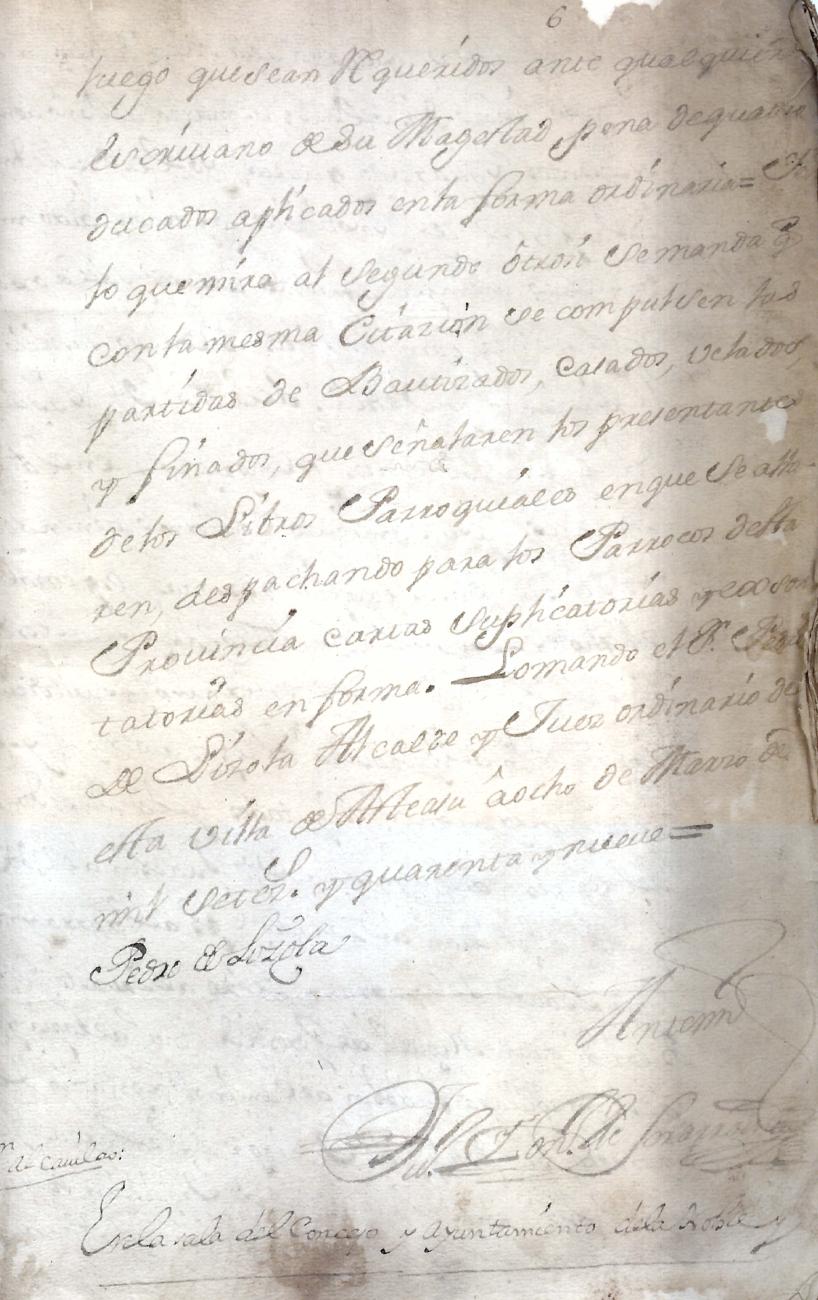 6
luego que sean Rqueridos ante qualquier
escriuano de Su Magestad, pena de quatro
ducados aplicados en la forma ordinaria=
lo que mira al segundo ôtrosi se manda q̃
con la mesma Citazion se compulsen las
partidas de Bautizados, Casados, velados,
y finados, que señalaren los presentantes
de los Libros Parroquiales en que se alla-
ren, despachando para los Parrocos desta
Prouincia cartas suplicatorias y exsor
tatorias en forma. Lo mando el Sr. Pedro
de Lizola Alcalde y Juez ordinario de
esta villa de Alcasu âocho de Marzo de
mil Setez.s y quarenta y nueue=
Pedro de Lizola
Antemi
al cauildo:
En la sala del Concejo y Ayuntamiento de la Noble y